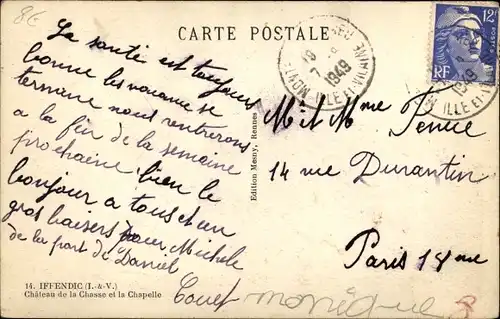 8€
CARTE POSTALE
La santé est toujours
bonne les vacances se
termine nous rentrerons
a la fin de la semaine
prochaine, bien le
bonjour a tous et un
gros baisers pour Michele
de la part de Daniel
14. IFFENDIC (I.-&-V.)
Château de la Chasse et la Chapelle
Edition Mesny, Rennes
12F
RF
1949
ILLE-ET-VILAINE
M et Mme
14 rue Durantin
Paris 18me
monique
8